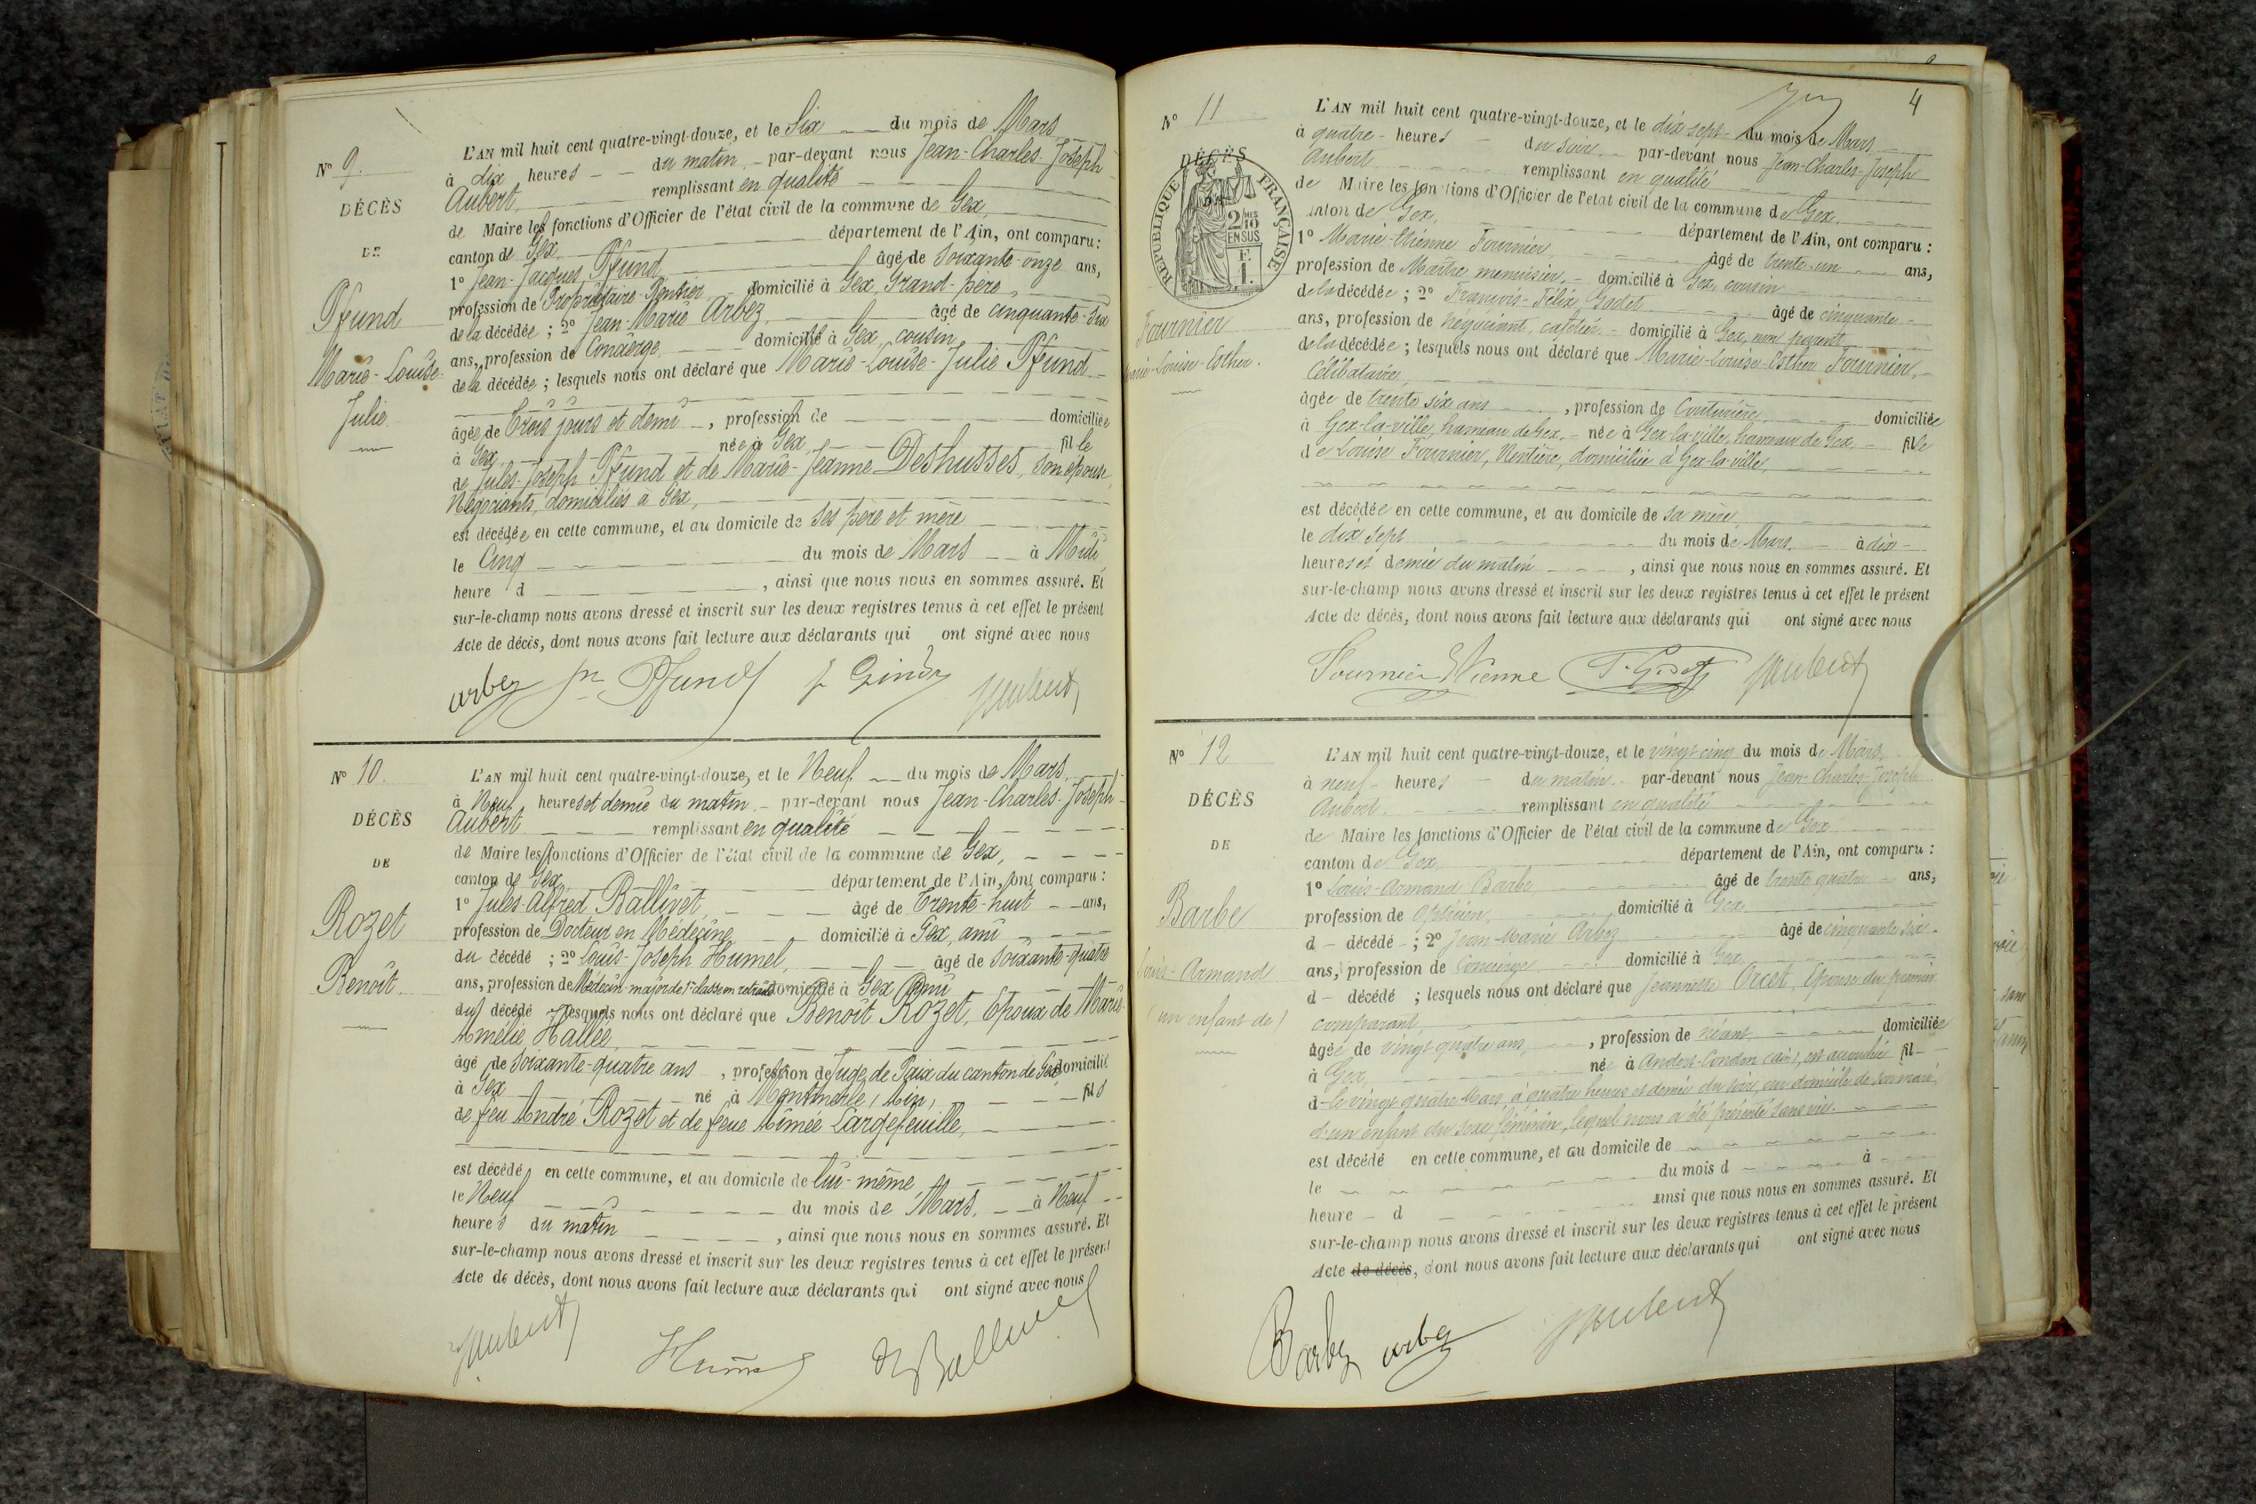 N° 9.
DÉCÈS
DE
Pfund
Marie-Louise-
Julie
L'AN mil huit cent quatre-vingt-douze, et le Six du mois de Mars
à dix heures du matin par-devant nous Jean-Charles-Joseph
Aubert, remplissant en qualité
de Maire les fonctions d'Officier de l'état civil de la commune de Gex,
canton de Gex département de l'Ain, ont comparu :
1° Jean-Jacques Pfund âgé de soixante-onze ans,
profession de Propriétaire-Rentier domicilié à Gex, Grand-père
de la décédée ; 2° Jean-Marie Arbez, âgé de cinquante-six
ans, profession de Concierge domicilié à Gex, cousin
de la décédée ; lesquels nous ont déclaré que Marie-Louise-Julie Pfund
âgée de trois jours et demi, profession de domiciliée
à Gex, née à Gex, fille
de Jules-Joseph Pfund et de Marie-Jeanne Deshusses, son épouse,
Négociants, domiciliés à Gex,
est décédée en cette commune, et au domicile de ses père et mère
le Cinq du mois de Mars à Midi
heure d , ainsi que nous nous en sommes assuré. Et
sur-le-champ nous avons dressé et inscrit sur les deux registres tenus à cet effet le présent
Acte de décès, dont nous avons fait lecture aux déclarants qui ont signé avec nous
arbez Pfund Aubert
N° 10.
DÉCÈS
DE
Rozet
Benoît
L'AN mil huit cent quatre-vingt-douze, et le Neuf du mois de Mars
à Neuf heures et demie du matin par-devant nous Jean-Charles-Joseph
Aubert remplissant en qualité
de Maire les fonctions d'Officier de l'état civil de la commune de Gex,
canton de Gex département de l'Ain, ont comparu :
1° Jules-Alfred Ballivet, âgé de Trente-huit ans,
profession de Docteur en Médecine domicilié à Gex, ami
du décédé ; 2° Louis-Joseph Humel, âgé de soixante-quatre
ans, profession de Médecin-major de 1e classe en retraite domicilié à Gex, ami
du décédé lesquels nous ont déclaré que Benoît Rozet, Epoux de Marie-
Amélie Hallée,
âgé de soixante-quatre ans, profession de Juge de Paix du canton de Gex domicilié
à Gex né à Montmerle (Ain), fils
de feu André Rozet et de feue Aimée Largefeuille,
est décédé en cette commune, et au domicile de lui-même,
le Neuf du mois de Mars, à Neuf
heures du matin , ainsi que nous nous en sommes assuré. Et
sur-le-champ nous avons dressé et inscrit sur les deux registres tenus à cet effet le présent
Acte de décès, dont nous avons fait lecture aux déclarants qui ont signé avec nous
Aubert Humel Ballivet
4
N° 11
DÉCÈS
RÉPUBLIQUE FRANÇAISE
2/10
EN SUS
Fournier
Marie-Louise-Esther.
L'AN mil huit cent quatre-vingt-douze, et le dix sept du mois de Mars
à quatre heures du soir par-devant nous Jean-Charles-Joseph
Aubert remplissant en qualité
de Maire les fonctions d'Officier de l'état civil de la commune de Gex
canton de Gex, département de l'Ain, ont comparu :
1° Marie-Etienne Fournier âgé de trente-un ans,
profession de Maître menuisier, domicilié à Gex, cousin
de la décédée ; 2° François-Félix Godet âgé de cinquante
ans, profession de Négociant, cafetier domicilié à Gex, non parent
de la décédée ; lesquels nous ont déclaré que Marie-Louise-Esther Fournier,
Célibataire,
âgée de trente six ans, profession de Couturière, domiciliée
à Gex-la-ville, hameau de Gex, née à Gex-la-ville, hameau de Gex, fille
de Louise Fournier, Rentière, domiciliée à Gex-la-ville,
est décédée en cette commune, et au domicile de sa mère
le dix sept du mois de Mars, à dix
heures et demie du matin , ainsi que nous nous en sommes assuré. Et
sur-le-champ nous avons dressé et inscrit sur les deux registres tenus à cet effet le présent
Acte de décès, dont nous avons fait lecture aux déclarants qui ont signé avec nous
Fournier Etienne F. Godet Aubert
N° 12
DÉCÈS
DE
Barbe
Louis-Armand
(un enfant de)
L'AN mil huit cent quatre-vingt-douze, et le vingt cinq du mois de Mars,
à neuf heures du matin par-devant nous Jean-Charles-Joseph
Aubert remplissant en qualité
de Maire les fonctions d'Officier de l'état civil de la commune de Gex
canton de Gex département de l'Ain, ont comparu :
1° Louis-Armand Barbe âgé de trente quatre ans,
profession de Opticien, domicilié à Gex
d décédé ; 2° Jean-Marie Arbez âgé de cinquante six
ans, profession de Concierge domicilié à Gex
d décédé ; lesquels nous ont déclaré que Jeannette Orset, Epouse du premier
comparant,
âgée de vingt quatre ans, profession de néant domiciliée
à Gex, née à Andert-Condon (Ain), est accouchée fil
d le vingt quatre Mars à quatre heures et demie du soir, au domicile de son mari,
d'un enfant du sexe féminin, lequel nous a été présenté sans vie.
est décédé en cette commune, et au domicile de
le du mois d à
heure d ainsi que nous nous en sommes assuré. Et
sur-le-champ nous avons dressé et inscrit sur les deux registres tenus à cet effet le présent
Acte de décès, dont nous avons fait lecture aux déclarants qui ont signé avec nous
Barbe arbez Aubert